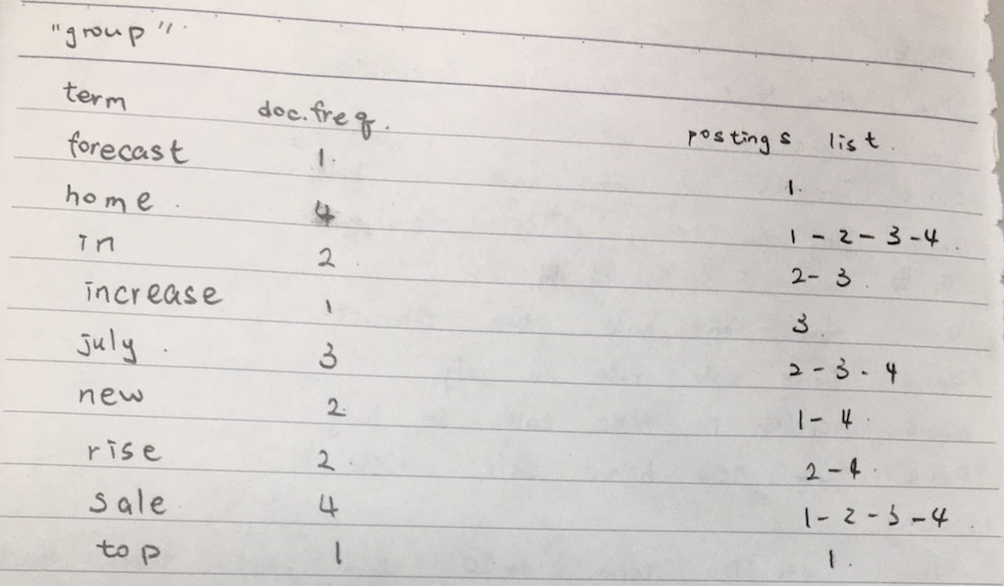 "group"
term doc.freq. postings list.
forecast 1. 1.
home. 4 1-2-3-4.
in 2. 2-3.
increase 1 3.
july. 3 2-3-4
new 2. 1-4.
rise 2. 2-4.
sale 4 1-2-3-4.
top 1 1.